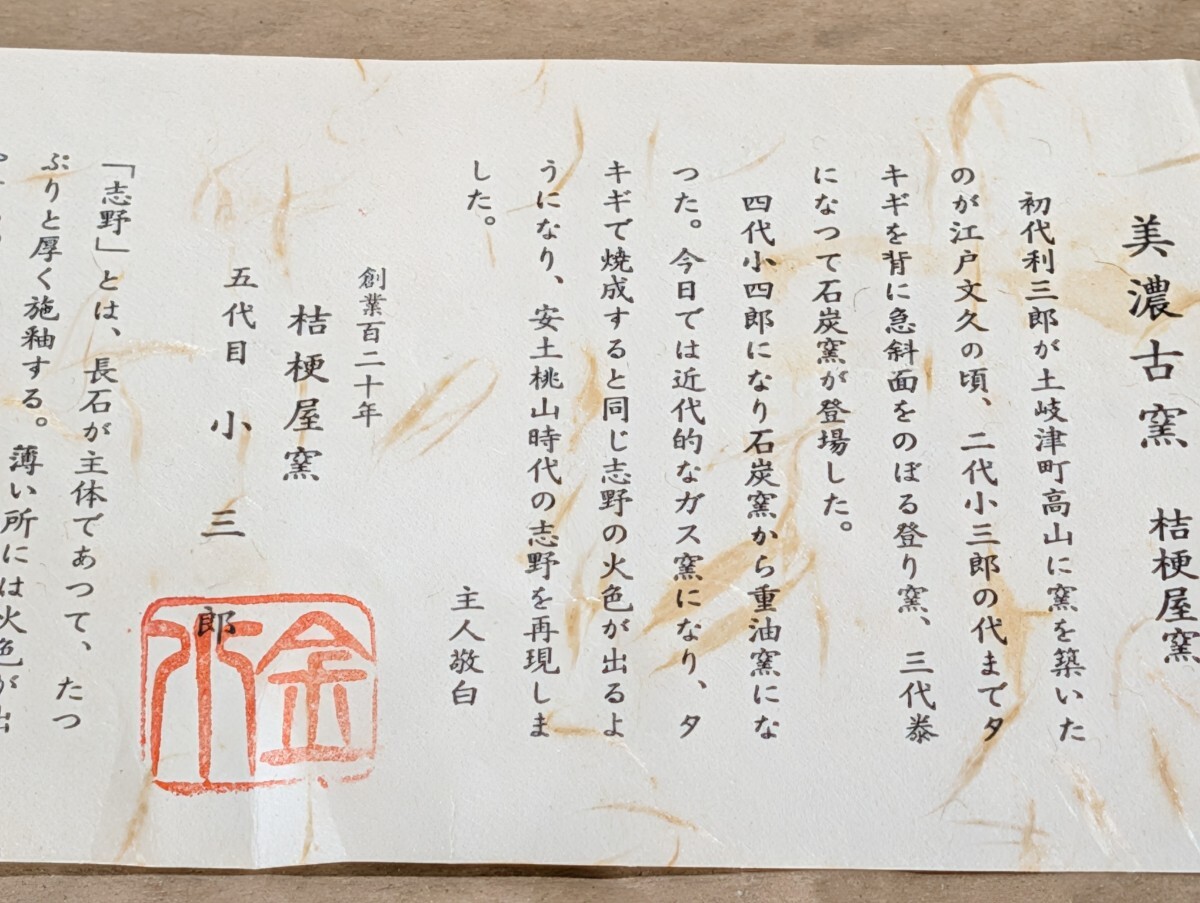 美濃古窯 桔梗屋窯
初代利三郎が土岐津町高山に窯を築いた
のが江戸文久の頃、二代小三郎の代までタ
キギを背に急斜面をのぼる登り窯、三代泰
になつて石炭窯が登場した。
四代小四郎になり石炭窯から重油窯にな
つた。今日では近代的なガス窯になり、タ
キギで焼成すると同じ志野の火色が出るよ
うになり、安土桃山時代の志野を再現しま
した。
主人敬白
創業百二十年
桔梗屋窯
五代目 小三郎
「志野」とは、長石が主体であつて、たつ
ぷりと厚く施釉する。薄い所には火色が出